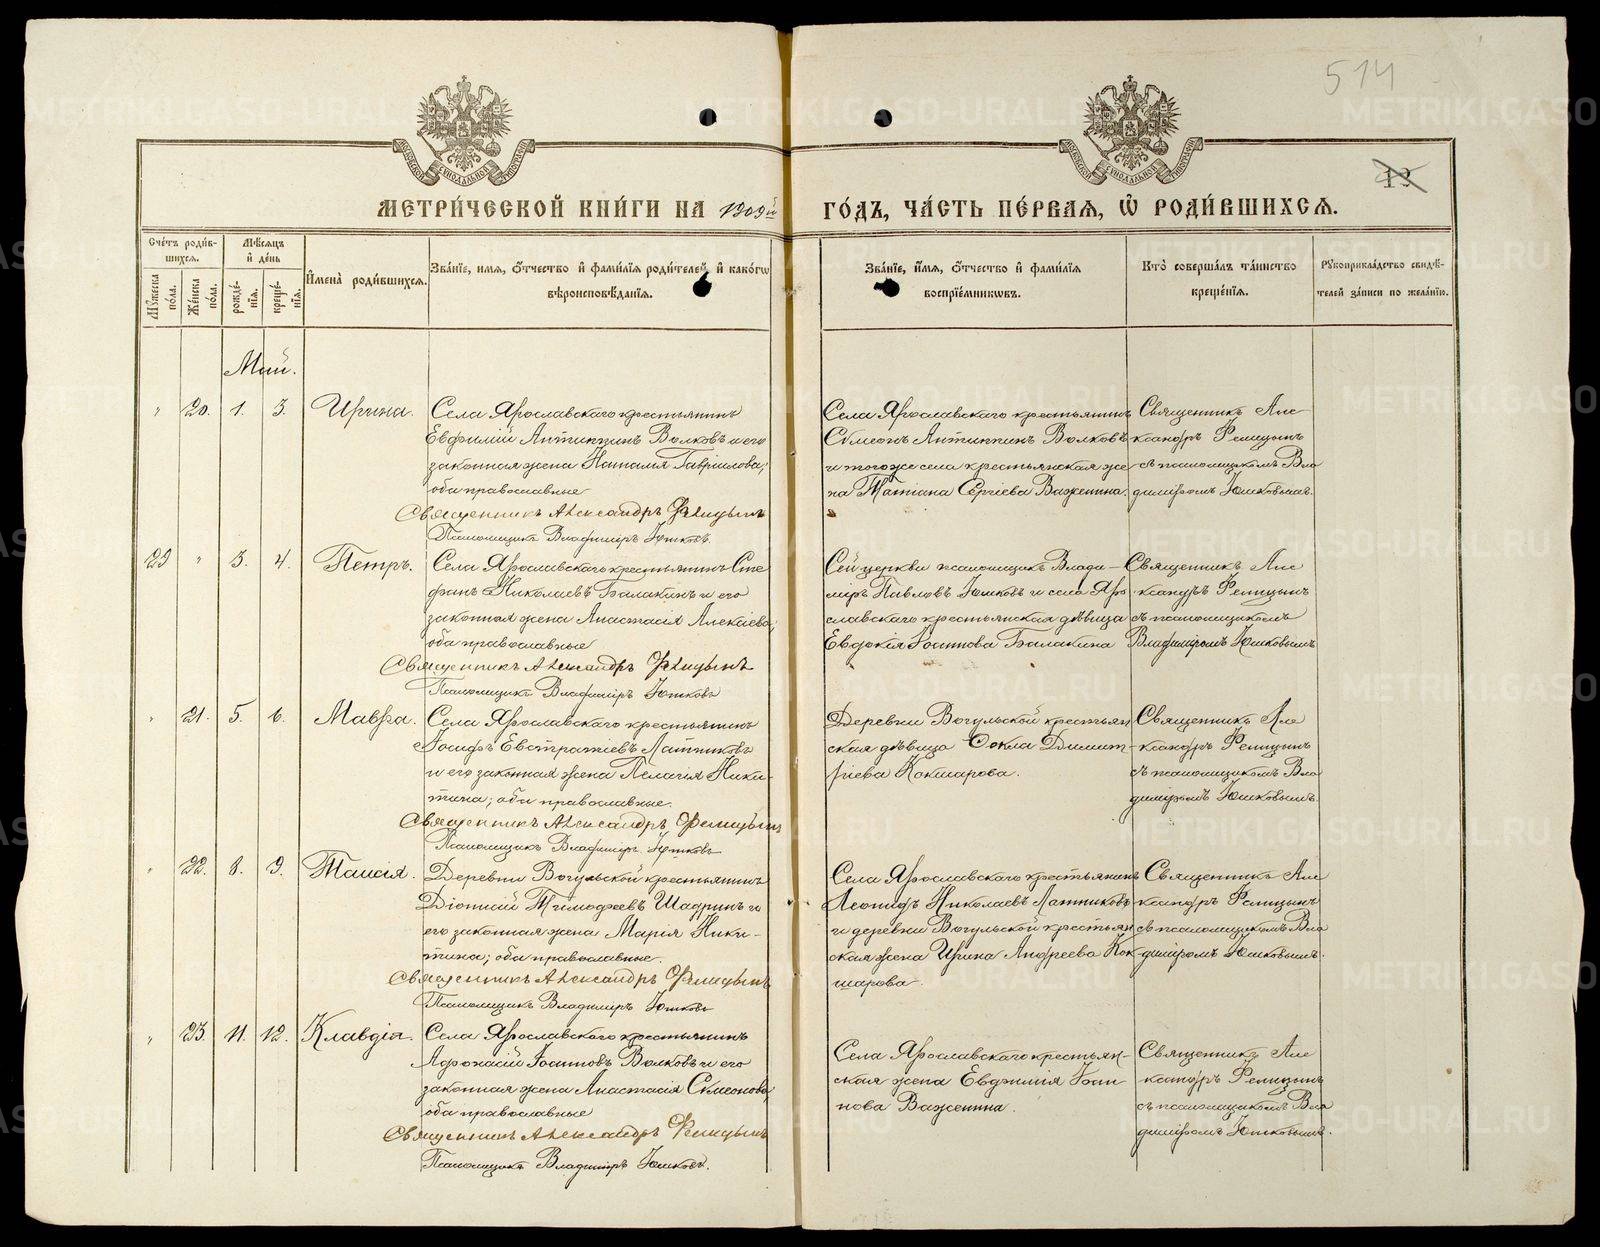 514
МЕТРИ́ЧЕСКОЙ КНИ́ГИ НА 1909й ГО́ДЪ, ЧА́СТЬ ПЕ́РВАЯ, Ѽ РОДИ́ВШИХСЯ.
Сче́тъ роди́в-
шихся.
Мѣсяцъ
и҆ де́нь
Мꙋжеска по́ла.
Же́нска по́ла.
рожде́нїѧ.
креще́нїѧ.
И҆мена̀ роди́вшихся.
Зва́нїе, имѧ, о҆́тчество и҆ фами́лїѧ роди́телей, и҆ како́гѡ
вѣроисповѣ́данїѧ.
Зва́нїе, и҆́мѧ, о҆́тчество и҆ фами́лїѧ
воспрїе́мникѡвъ.
Кто̀ соверша́лъ та́инство
креще́нїѧ.
Рꙋкоприкла́дство свидѣ́-
телей за́писи по жела́нїю.
Май.
" 20. 1. 3. Ирина.
Села Ярославскаго крестьянинъ
Евфимій Антипинъ Волковъ и его
законная жена Наталія Гавріилова;
оба православные
Священникъ Александръ Ѳелицынъ
Псаломщикъ Владиміръ Юшковъ.
Села Ярославскаго крестьянинъ
Сѷмеонъ Антипинъ Волковъ
и того же села крестьянская же
на Татіана Сергіева Важенина.
Священникъ Але
ксандръ Ѳелицынъ
съ псаломщикомъ Вла
диміромъ Юшковымъ.
29 " 3. 4. Петръ.
Села Ярославскаго крестьянинъ Сте
фанъ Николаевъ Балакинъ и его
законная жена Анастасія Алексіева;
оба православные
Священникъ Александръ Ѳелицынъ
Псаломщикъ Владиміръ Юшковъ
Сей церкви псаломщикъ Влади-
міръ Павловъ Юшковъ и села Яро
славскаго крестьянская дѣвица
Евдокія Іоаннова Балакина
Священникъ Але
ксандръ Ѳелицынъ
съ псаломщикомъ
Владиміромъ Юшковымъ
" 21. 5. 6. Мавра.
Села Ярославскаго крестьянинъ
Іосифъ Евстратіевъ Латниковъ
и его законная жена Пелагія Ники-
тина; оба православные.
Священникъ Александръ Ѳелицынъ
Псаломщикъ Владиміръ Юшковъ
Деревни Вогульской крестьян
ская дѣвица Ѳекла Димит-
ріева Кокшарова.
Священникъ Але
ксандръ Ѳелицынъ
съ псаломщикомъ Вла
диміромъ Юшковымъ.
" 22. 8. 9. Таисія.
Деревни Вогульской крестьянинъ
Діонисій Тимофеевъ Шадринъ и
его законная жена Марія Ники-
тина; оба православные.
Священникъ Александръ Ѳелицынъ
Псаломщикъ Владиміръ Юшковъ
Села Ярославскаго крестьянинъ
Леонидъ Николаевъ Латниковъ
и деревни Вогульской крестьян
ская жена Ирина Андреева Кок-
шарова.
Священникъ Але
ксандръ Ѳелицынъ
съ псаломщикомъ Вла
диміромъ Юшковымъ.
" 23. 11. 12. Клавдія.
Села Ярославскаго крестьянинъ
Афонасій Іоанновъ Волковъ и его
законная жена Анастасія Сѷмеонова,
оба православные
Священникъ Александръ Ѳелицынъ
Псаломщикъ Владиміръ Юшковъ.
Села Ярославскаго крестьян-
ская жена Евфимія Іоан
нова Важенина.
Священникъ Але
ксандръ Ѳелицынъ
съ псаломщикомъ Вла
диміромъ Юшковымъ.
METRIKI.GASO-URAL.RU